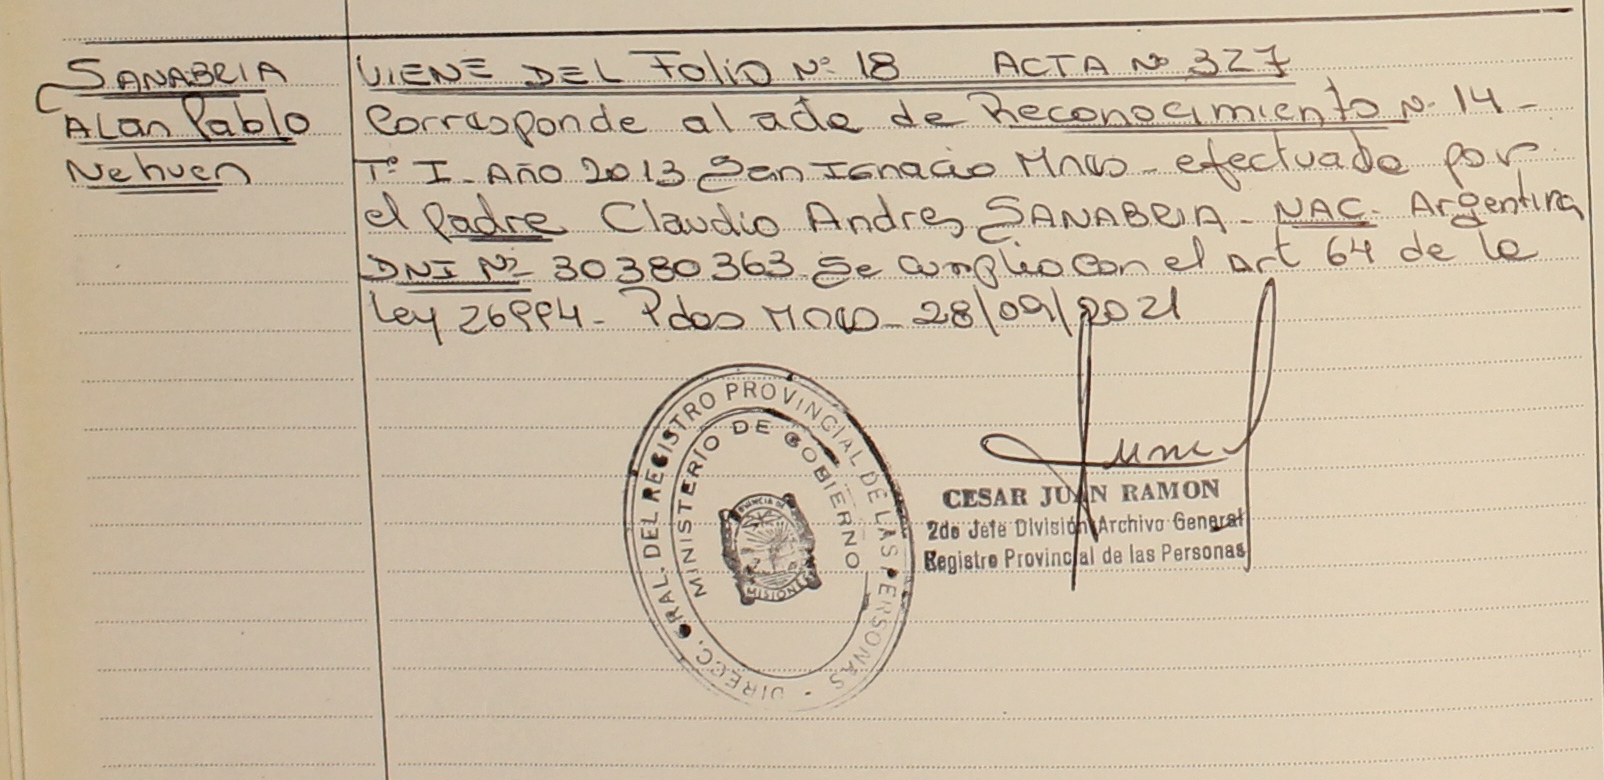 SANABRIA
Alan Pablo
Nehuen
VIENE DEL Folio Nº 18 ACTA Nº 327
Corresponde al acta de Reconocimiento Nº 14 -
Tº I - Año 2013 San Ignacio Mnes - efectuado por
el padre Claudio Andres SANABRIA - NAC. Argentina
DNI Nº 30380363 Se cumplio con el art 64 de la
Ley 26994 - Pdas Mnes - 28/09/2021
DIRECC. GRAL. DEL REGISTRO PROVINCIAL DE LAS PERSONAS -
MINISTERIO DE GOBIERNO
PROVINCIA DE
MISIONES
CESAR JUAN RAMON
2do Jefe División Archivo General
Registro Provincial de las Personas